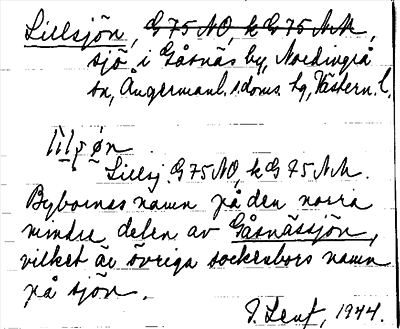 Lillsjön, G 75 NO, k G 75 NN.
sjö i Gåsnäs by, Nordingrå
sn, Ångermanl. s. doms. hg, Västern. l.
lil̥søn
Lillsj G 75 NO, k G 75 NN.
Bybornas namn på den norra
mindre delen av Gåsnässjön,
vilket är övriga sockenbors namn
på sjön.
1944.